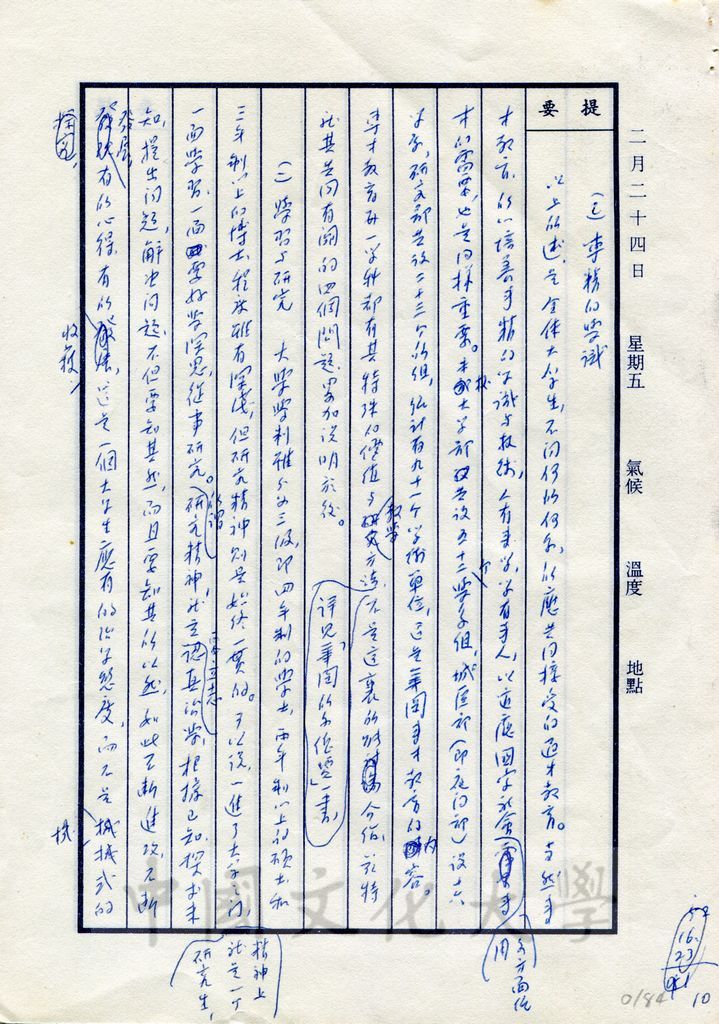 二月二十四日 星期五 氣候 溫度 地點
提要
(三)專精的學識
以上所述,是全體大學生,不問何所何系,所應共同接受的通才教育。當然專
才教育,所以培養專精的學識與技術,人有專學,學有專人,以適應國家社會各方面任用
才的需要,也是同樣重要。本校大學部共設五十二學系組,城區部(即夜間部)設十六
學系,研究部共設二十三個所組,統計有九十一個學術單位,這是華岡專才教育的內容
專才教育每一學科都有其特殊的價值與教學方法,不是這裏所能介紹,
詳見「華岡的
一書,
就其共同有關的四個問題畧加說明於後。
(一)學習與研究 大學學制雖分為三級,即四年制的學士,兩年制以上的碩士和
三年制以上的博士,程度雖有深淺,但研究精神則是始終一貫的。可以說,一進了大學之門,
精神上就是一個研究生,
一面學習,一面要好學深思,從事研究。所謂研究精神就是
立志
認真治學,根據已知,探求未
知,提出問題,解決問題,不但要知其然,而且要知其所以然,如此不斷進攻,不斷
發展
探究,
有所心得,有所收穫,這是一個大學生應有的治學態度,而不是機械式的
中國文化大學
54
16
23
91
10
0184